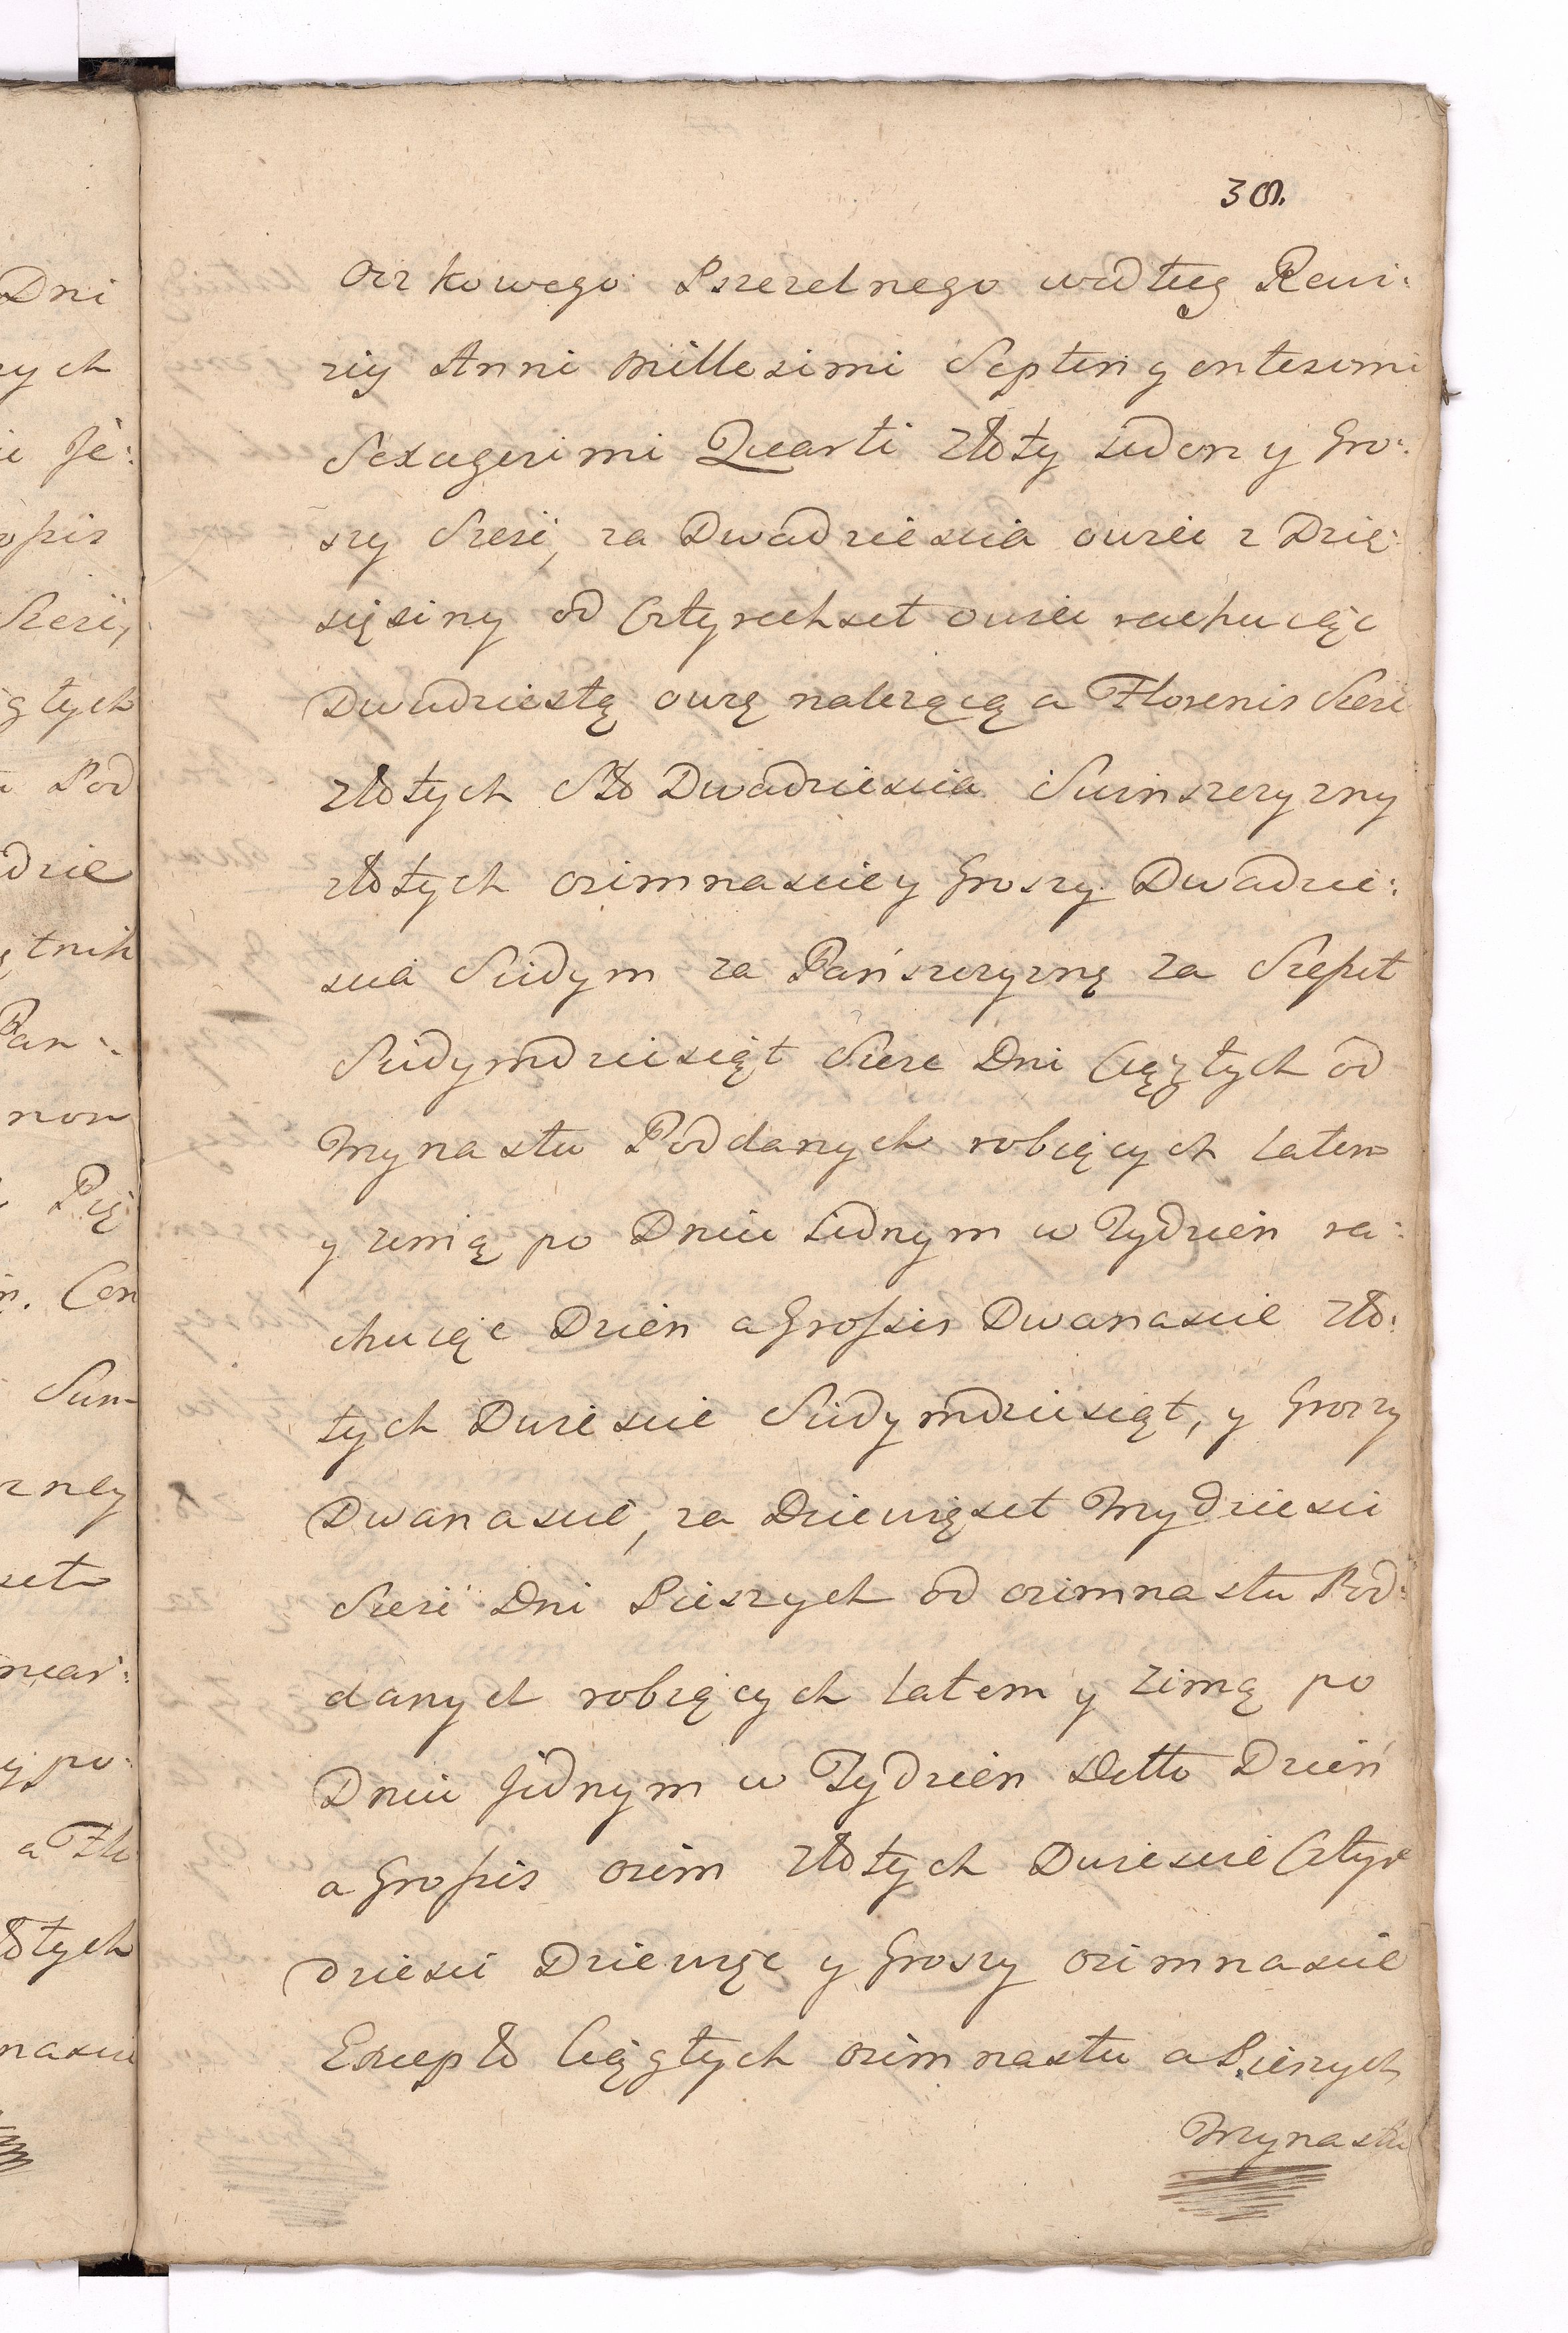 30.
Oczkowego Pszczelnego według Rewi:
zij Anni Millesimi Septingentesimi
Sexagesimi Quarti złoty ieden y Gro:
szy Szesc, za Dwadziescia owiec z Dzie:
sięciny od Czterechset owiec rachuiąc
Dwudziestą owcę należącą a Florenis Szesc
złotych Sto Dwadziescia Swinszczyzny
złotych osimnascie y Groszy Dwadzie:
scia Siedym za Pańszczyznę za Szescset
Siedymdziesiąt Szesc Dni Ciągłych od
Trzynastu Poddanych robiących latem
y zimą po Dniu iednym w Tydzien ra:
chuiąc Dzien a Grossis Dwanascie zło:
tych Dwiescie Siedymdziesiąt, y Groszy
Dwanascie, za Dziewięset Trzydziesci
Szesc Dni Pieszych od osimnastu Pod:
danych robiących latem y zimą po
Dniu Jednym w Tydzien Detto Dzień
a Grossis osim złotych Dwiescie Cztyr
dziesci Dziewięc y Groszy osimnascie
Excepto Ciągłych osimnastu a Pieszych
Trzynastu
Dni
nych
Je:
ossis
Szesc,
ągłych
Pod
dzie
ętnik
Pan:
non
Pię
Cen
Sum
zney
set
mear:
y po:
a Flo
łotych
nascie